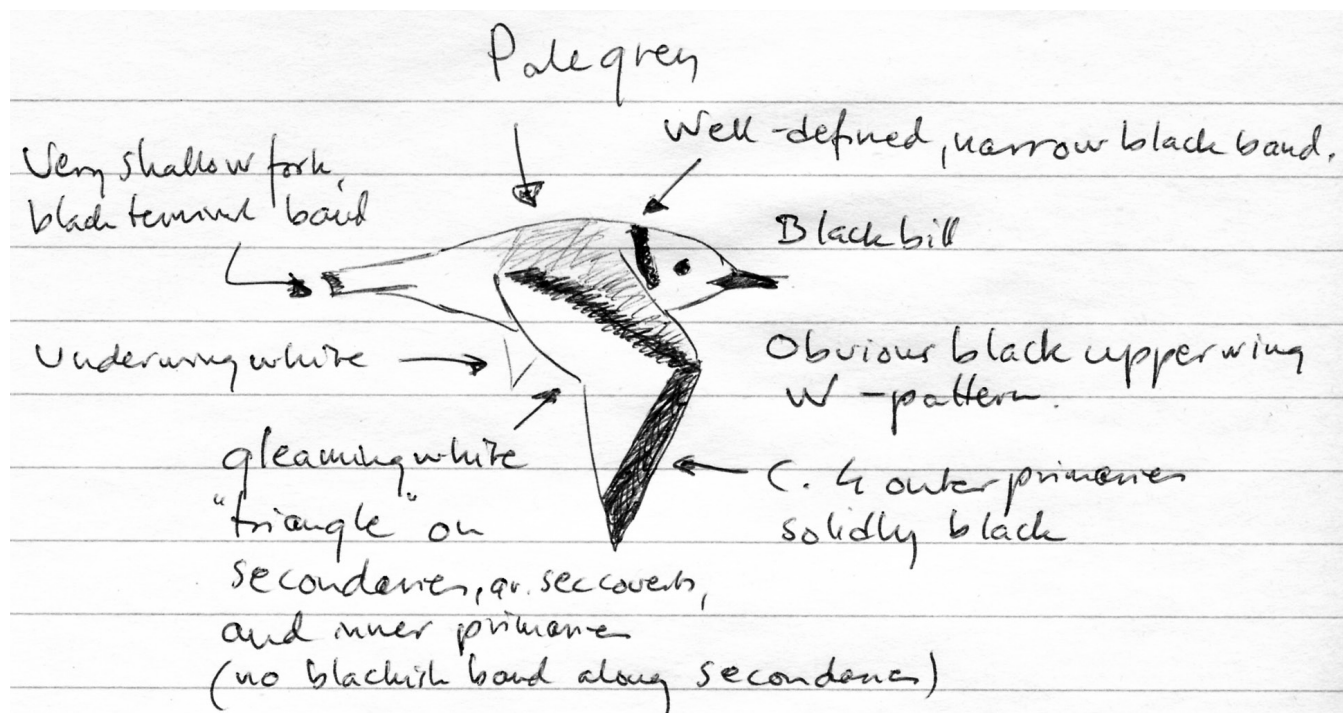 Pale grey
Well-defined, narrow black band.
Very shallow fork,
black terminal band
Black bill
Underwing white
Obvious black upperwing
W-pattern.
gleaming white
"triangle" on
secondaries, gr. sec coverts,
and inner primaries
(no blackish band along secondaries)
C. 4 outer primaries
solidly black